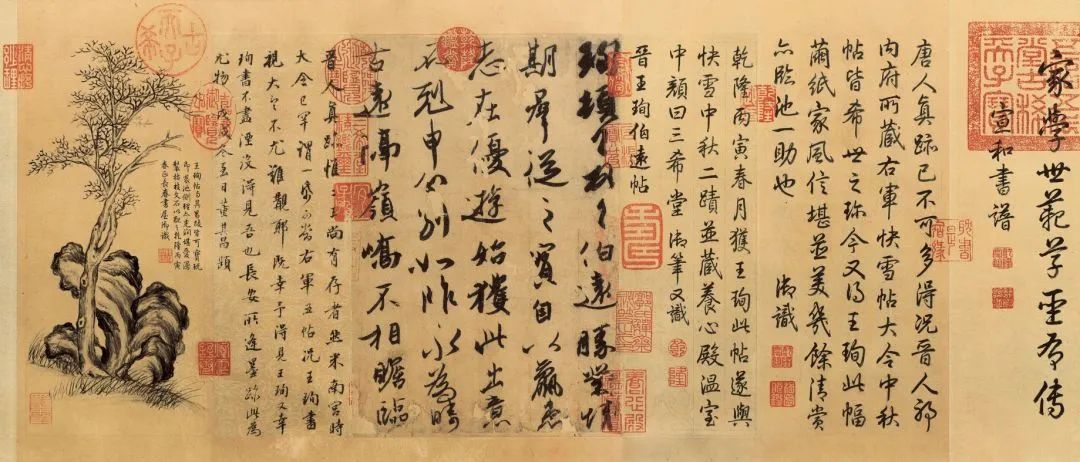 家學世範草聖有傳
宣和書譜
唐人真跡已不可多得況晉人耶
內府所藏右軍快雪帖大令中秋
帖皆希世之珍今又得王珣此幅
繭紙家風信堪並美幾餘清賞
亦臨池一助也 御識
乾隆丙寅春月獲王珣此帖遂與
快雪中秋二蹟並藏養心殿溫室
中顏曰三希堂 御筆又識
晉王珣伯遠帖
珣頓首頓首伯遠勝業情
期羣從之寶自以羸患
志在優遊始獲此出意
不剋申分別如昨永為疇
古遠隔嶺嶠不相瞻臨
晉人真跡惟二王尚有存者然米南宮時
大令已罕謂一紙可當右軍五帖況王珣書
視大令不尤難覯耶既幸予得見王珣又幸
珣書不盡湮沒得見吾也長安所逢墨跡此為
尤物戊戌冬至日董其昌題
王珣帖與其昌跋皆可寶玩
即裝池側理亦光潤堪愛漫
製枯枝文石以配之乾隆丙寅
春正長春書屋御識
古希天子